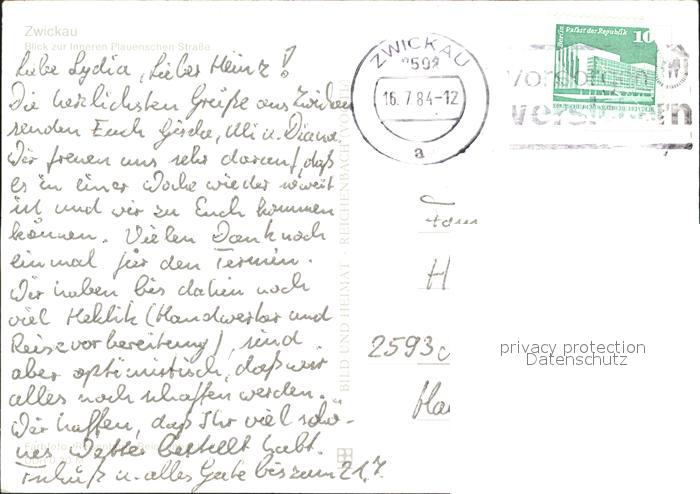 Zwickau
Blick zur Inneren Plauenschen Straße
Liebe Lydia, Lieber Heinz!
Die herzlichsten Grüße aus Zwickau
senden Euch Gisela, Uli u. Diana
Wir freuen uns sehr darauf, daß
es in einer Woche wieder soweit
ist und wir zu Euch kommen
können. Vielen Dank noch
einmal für den Termin.
Wir haben bis dahin noch
viel Hektik (Handwerker und
Reisevorbereitung), sind
aber optimistisch, daß wir
alles noch schaffen werden.
Wir hoffen, daß Ihr viel schö-
nes Wetter bestellt habt.
u. alles Gute bis zum 21.7.
BILD UND HEIMAT · REICHENBACH
ZWICKAU
16.7.84-12
a
Berlin, Palast der Republik
10
vorsorgen
versichern
Fam
H
2593
privacy protection
Datenschutz